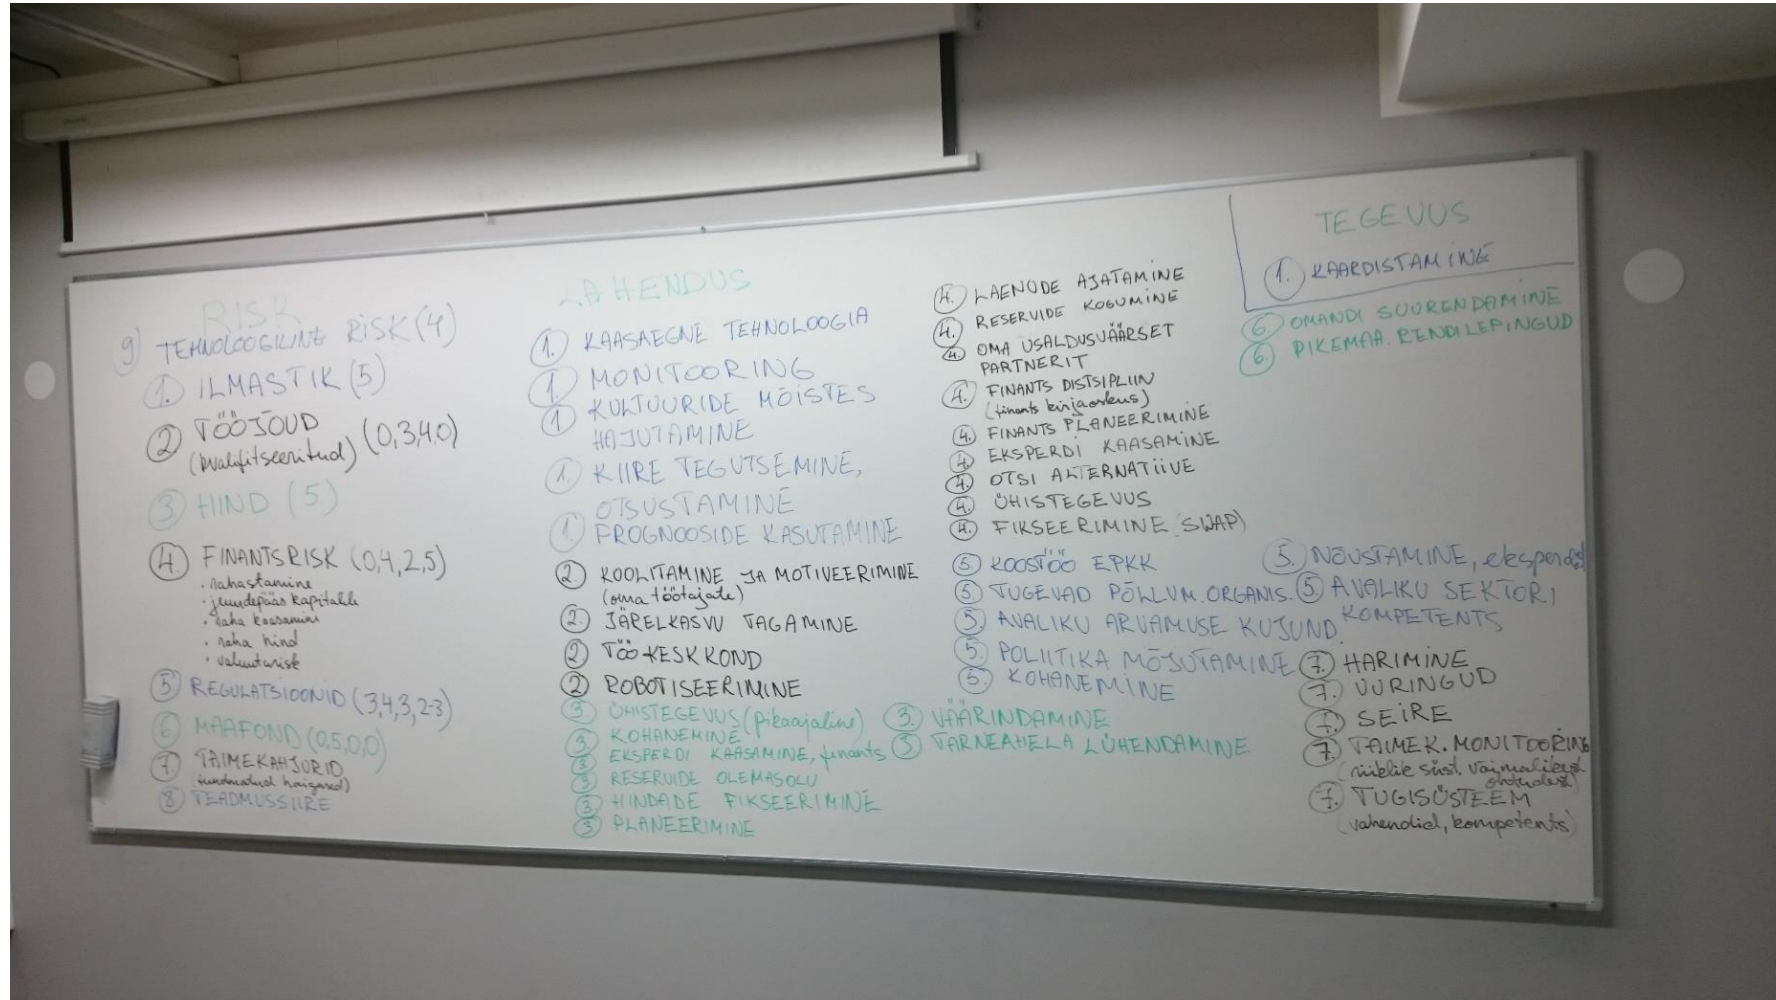 RISK
9) TEHNOLOOGILINE RISK (4)
1. ILMASTIK (5)
2 TÖÖJÕUD (0,3,4,0)
(kvalifitseeritud)
3 HIND (5)
4. FINANTSRISK (0,4,2,5)
· rahastamine
· juurdepääs kapitalile
· raha kaasamine
· raha hind
· valuutarisk
5 REGULATSIOONID (3,4,3,2-3)
6. MAAFOND (0,5,0,0)
7. TAIMEKAHJURID
(tundmatud haigused)
8 TEADMUSSIIRE
LAHENDUS
1. KAASAEGNE TEHNOLOOGIA
1. MONITOORING
1 KULTUURIDE MÕISTES
HAJUTAMINE
1. KIIRE TEGUTSEMINE,
OTSUSTAMINE
1. PROGNOOSIDE KASUTAMINE
2 KOOLITAMINE JA MOTIVEERIMINE
(oma töötajate)
2. JÄRELKASVU TAGAMINE
2 TÖÖKESKKOND
2 ROBOTISEERIMINE
3 ÜHISTEGEVUS (pikaajaline)
3 KOHANEMINE
3 EKSPERDI KAASAMINE, finants
3 RESERVIDE OLEMASOLU
3 HINDADE FIKSEERIMINE
3 PLANEERIMINE
3. VÄÄRINDAMINE
3 TARNEAHELA LÜHENDAMINE
4. LAENUDE AJATAMINE
4. RESERVIDE KOGUMINE
4. OMA USALDUSVÄÄRSET
PARTNERIT
4. FINANTS DISTSIPLIIN
(finants kirjaoskus)
4. FINANTS PLANEERIMINE
4 EKSPERDI KAASAMINE
4. OTSI ALTERNATIIVE
4. ÜHISTEGEVUS
4. FIKSEERIMINE (SWAP)
5 KOOSTÖÖ EPKK
5 TUGEVAD PÕLLUM. ORGANIS.
5. AVALIKU ARVAMUSE KUJUND.
5. POLIITIKA MÕJUTAMINE
5. KOHANEMINE
5. NÕUSTAMINE, eksperdid
5 AVALIKU SEKTORI
KOMPETENTS
7. HARIMINE
7. UURINGUD
7. SEIRE
7 TAIMEK. MONITOORING
(riiklik süst. võimalikest
ohtudest)
7. TUGISÜSTEEM
(vahendid, kompetents)
TEGEVUS
1. KAARDISTAMINE
6. OMANDI SUURENDAMINE
6. PIKEMAA. RENDILEPINGUD